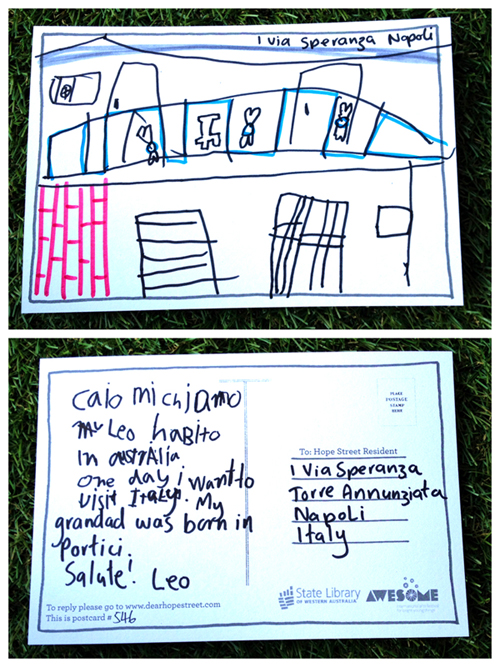 1 via Speranza Napoli
caio michiamo
Leo habito
in australia
one day i want to
visit Italy. My
grandad was born in
Portici.
Salute! Leo
To reply please go to www.dearhopestreet.com
This is postcard # 546
PLACE
POSTAGE
STAMP
HERE
To: Hope Street Resident
1 Via Speranza
Torre Annunziata
Napoli
Italy
State Library
OF WESTERN AUSTRALIA
AWESOME